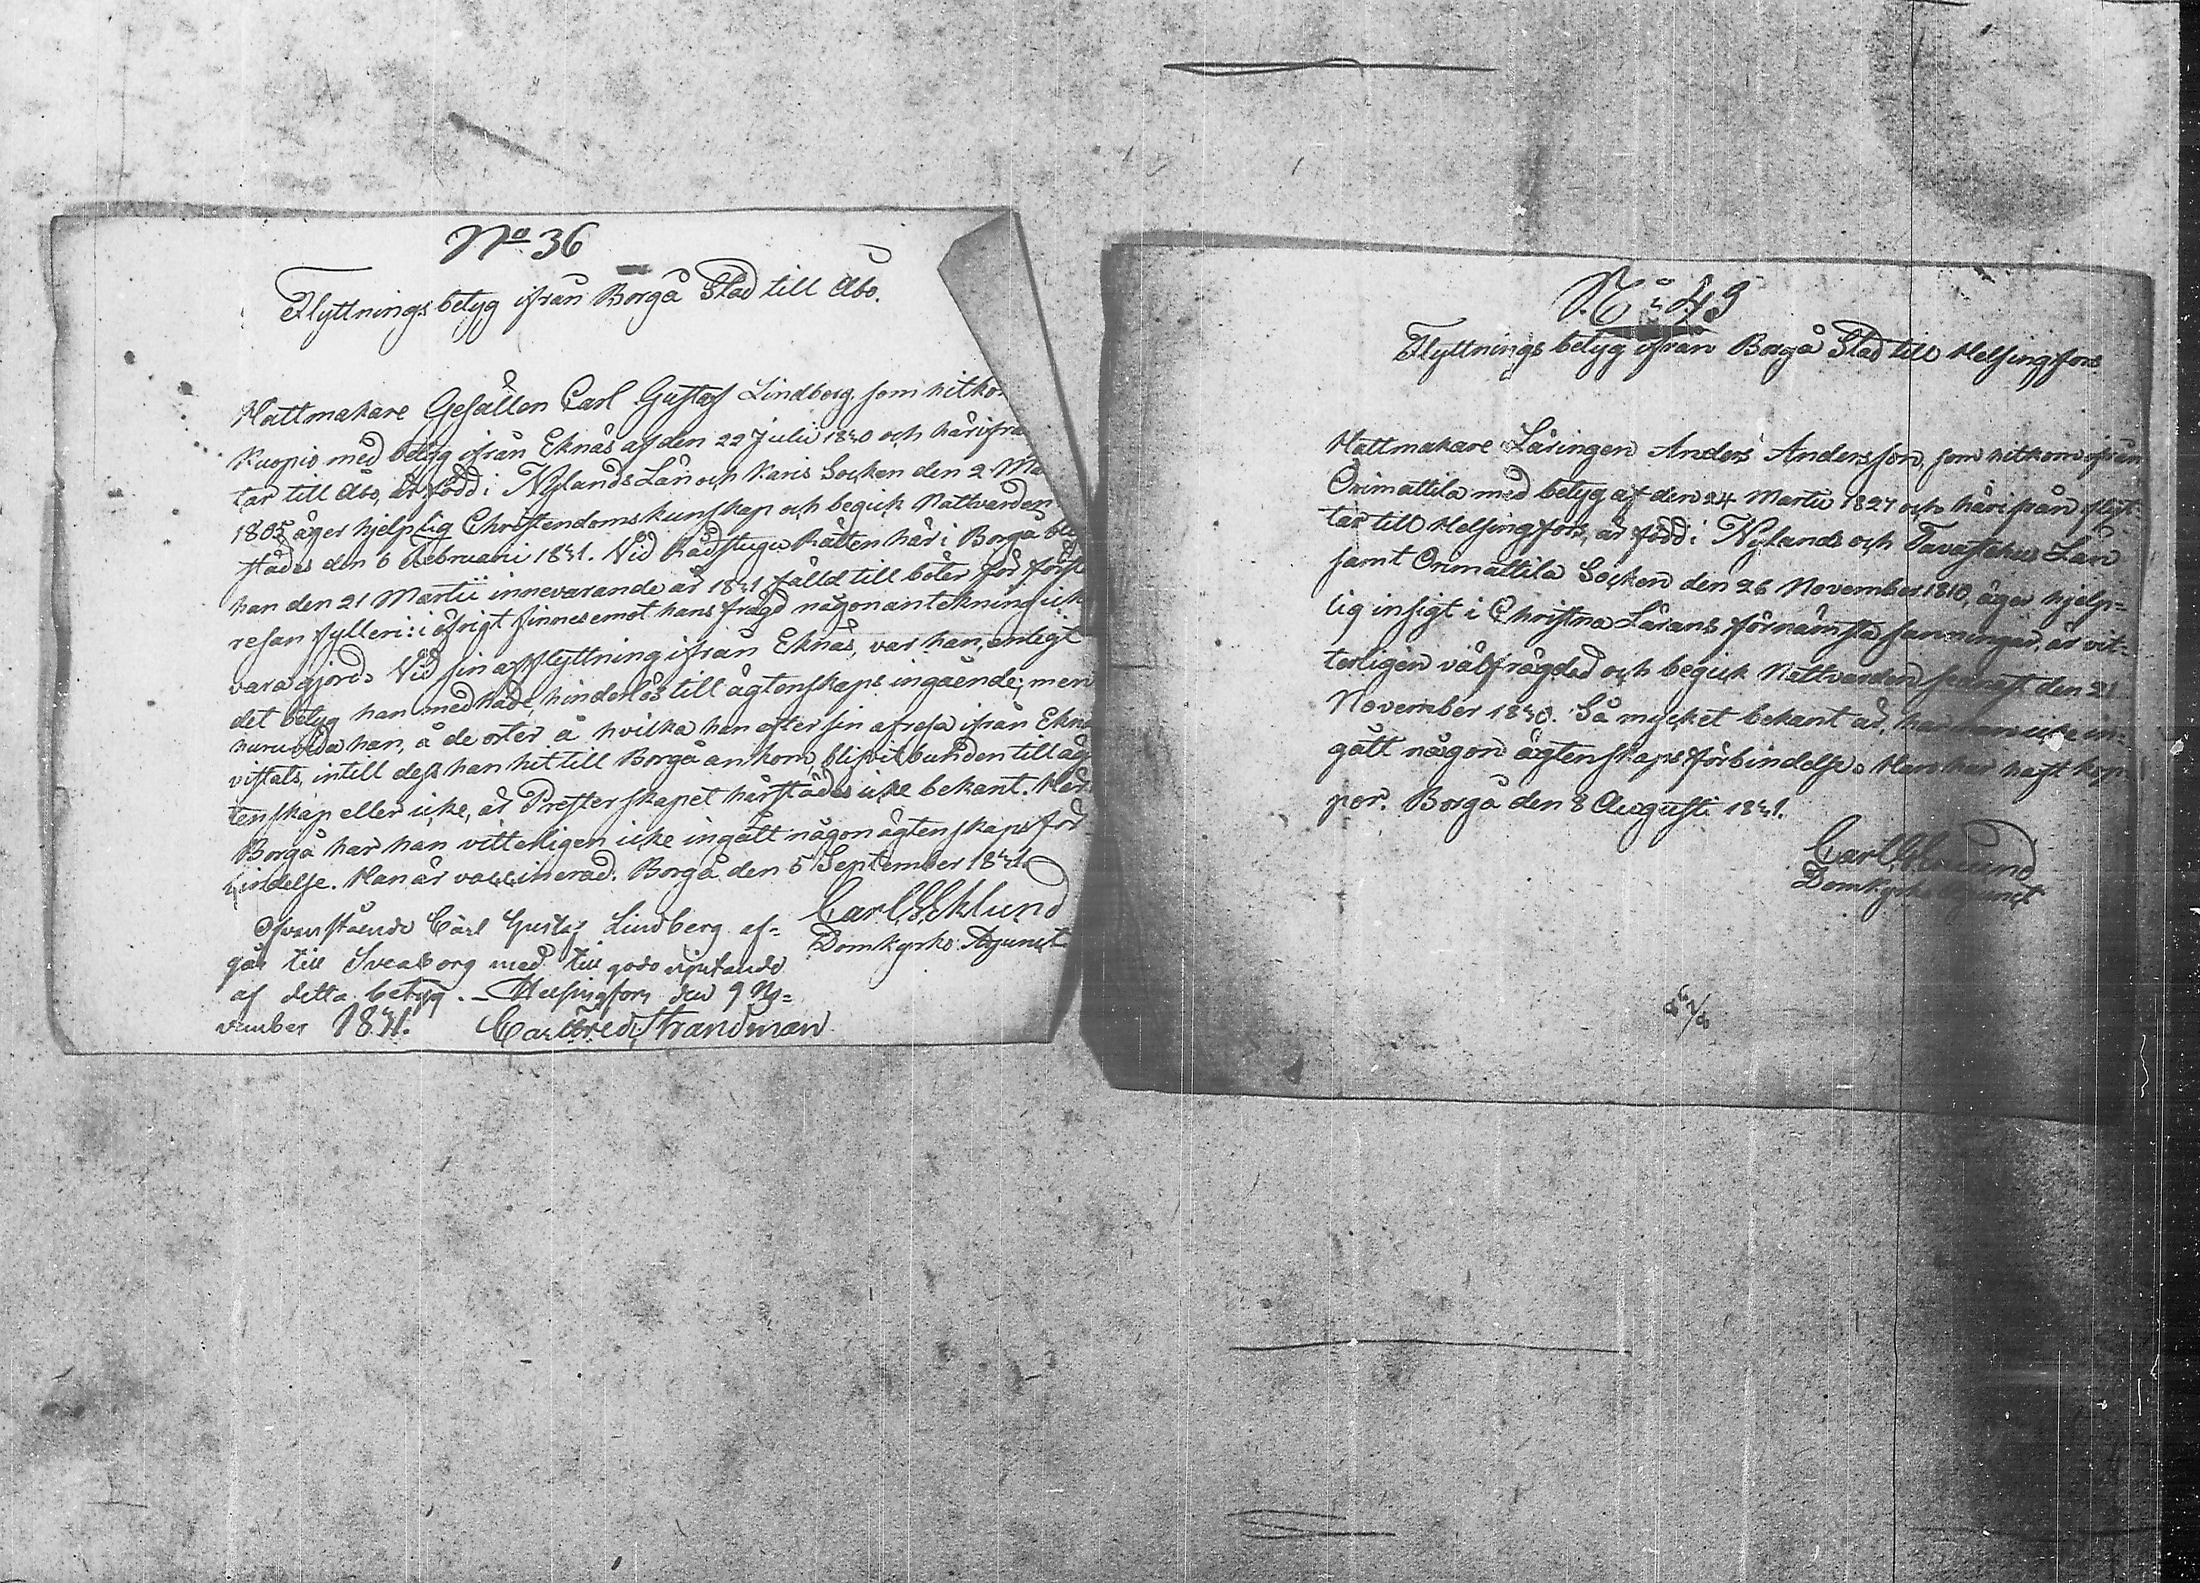 No 36
Flyttnings betyg ifrån Borgå Stad till Åbo.
Hattmakare Gesällen Carl Gustaf Lindberg som hitkom
Kuopio med betyg ifrån Eknäs af den 22 Julii 1830 och härifrå
tar till Åbo, är född i Nylands Län och Karis Socken den 2 Ma
1805 äger hjelplig Christendomskunskap och begick Nattvarden
städes den 6 Februarii 1831. Vid Rådstugu Rätten här i Borgå ble
han den 21 Martii innevarande år 1831 fälld till böter för förs
resan fylleri: i öfrigt finnes emot hans frägd någon antekning ick
vara gjord. Vid sin afflyttning ifrån Eknäs, var han, enligt
det betyg han medhade, hinderlös till ägtenskaps ingående; men
huruvida han, å de orter å hvilka han efter sin afresa ifrån Eknä
vistats, intill dess han hit till Borgå ankom, blifvit bunden till äg
tenskap eller icke, är Presterskapet härstädes icke bekant. Här i
Borgå har han vitterligen icke ingått någon ägtenskaps för-
bindelse. Han är vaccinerad. Borgå den 5 September 1831.
Carl G Eklund
Domkyrko Adjunct
Ofvanstående Carl Gustaf Lindberg af-
går till Sveaborg med till godo njutande
af detta betyg. - Helsingfors den 9 No-
vember 1831. Carl Fred. Strandman
No 49
Flyttnings betyg ifrån Borgå Stad till Helsingfors
Hattmakare Läringen Anders Andersson, som hitkom ifrån
Orimattila med betyg af den 24 Martii 1827 och härifrån flyt-
tar till Helsingfors, är född i Nylands och Tavastehus Län
samt Orimattila Socken den 26 November 1810, äger hjelp-
lig insigt i Christna Lärans förnämsta sanningar, är vit-
terligen välfrägdad och begick Nattvarden senast den 21
November 1830. Så mycket bekant är, har han icke in-
gått någon ägtenskaps förbindelse. Han har haft kop-
por. Borgå den 8 Augusti 1831.
Carl G Eklund
Domkyrko Adjunct